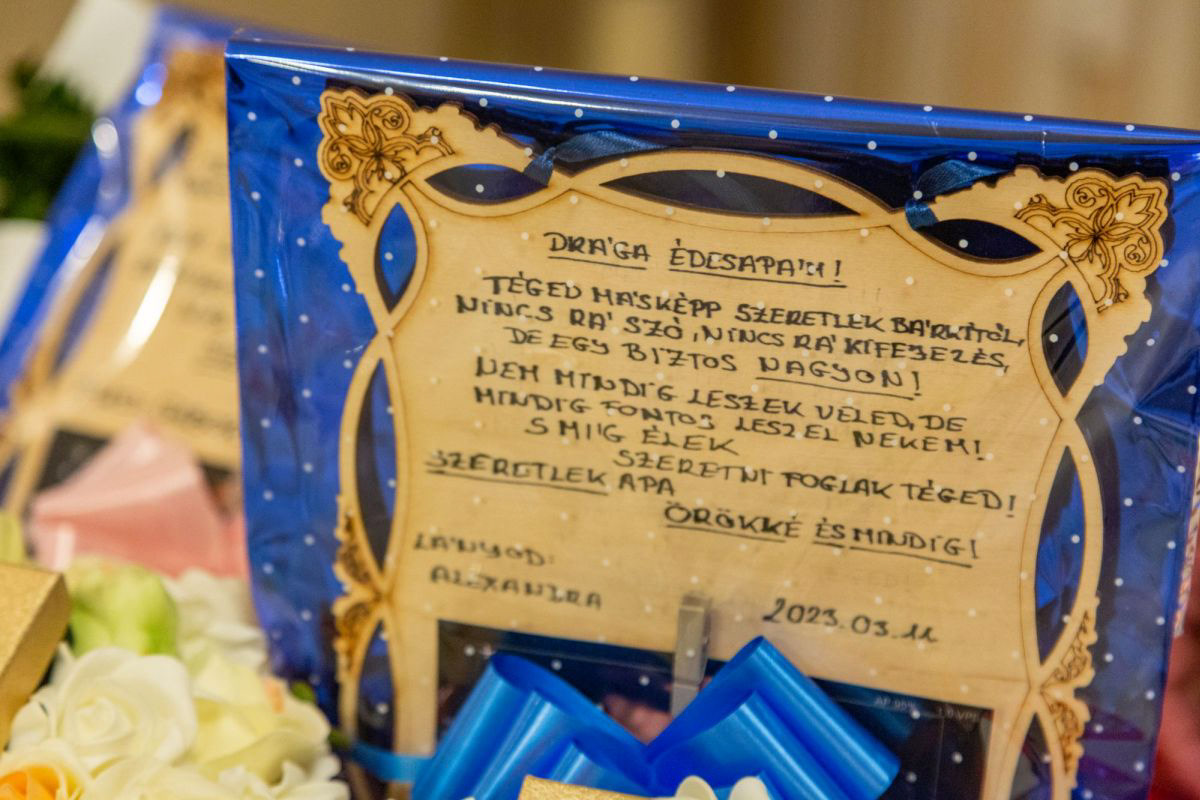 DRÁGA ÉDESAPÁM!
TÉGED MÁSKÉPP SZERETLEK BÁRKITŐL,
NINCS RÁ SZÓ, NINCS RÁ KIFEJEZÉS,
DE EGY BIZTOS NAGYON!
NEM MINDIG LESZEK VELED, DE
MINDIG FONTOS LESZEL NEKEM!
S MÍG ÉLEK
SZERETNI FOGLAK TÉGED!
SZERETLEK APA
ÖRÖKKÉ ÉS MINDIG!
LÁNYOD:
ALEXANDRA
2023.03.11